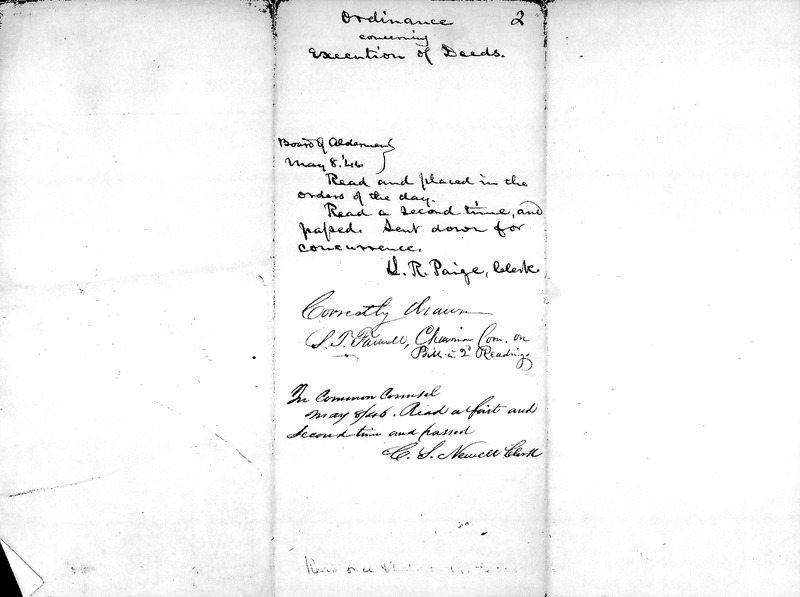 Ordinance 2
concerning
Execution of Deeds.
Board of Aldermen
May 8. '46
Read and placed in the
orders of the day.
Read a second time, and
passed. Sent down for
concurrence.
L. R. Paige, Clerk
Correctly drawn
S. T. Farwell, Chairman Com. on
Bills in 2d Reading
In Common Counsel
May 8/46. Read a first and
second time and passed
C. S. Newell Clerk